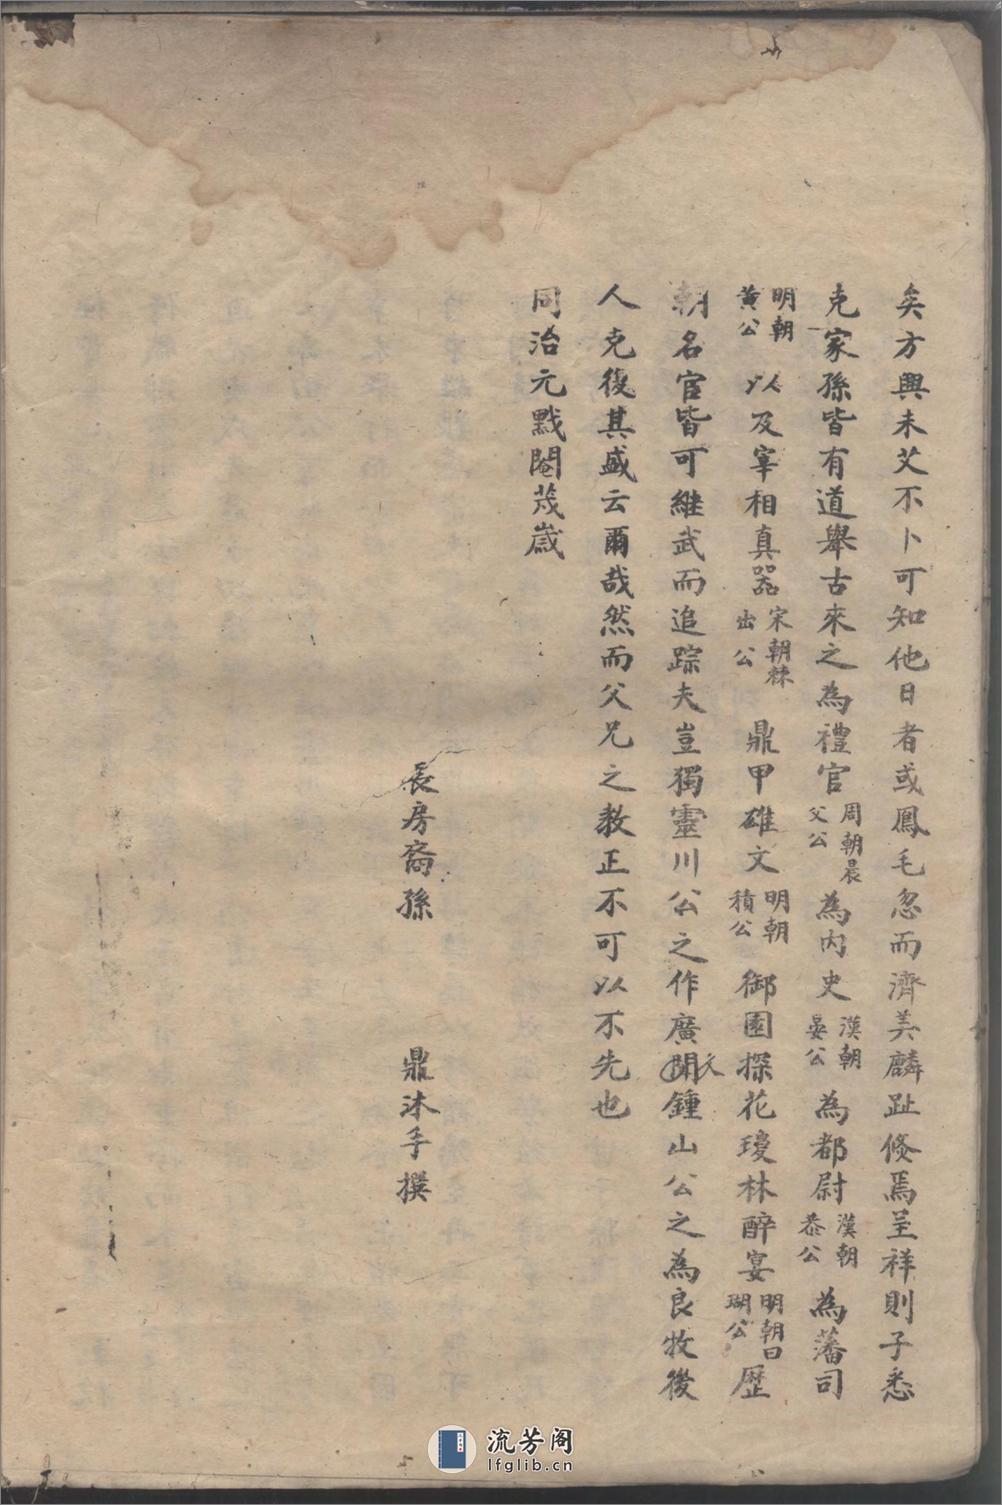 矣方興未艾不卜可知他日者或鳳毛忽而濟美麟趾倏焉呈祥則子悉
克家孫皆有道舉古來之為禮官周朝晨父公為內史漢朝晏公為都尉漢朝恭公為藩司
明朝黃公以及宰相真器宋朝棘出公鼎甲雄文明朝積公御園探花瓊林醉宴明朝曰瑚公歷
朝名宦皆可繼武而追踪夫豈獨靈川公之作廣聞文鍾山公之為良牧後
人克復其盛云爾哉然而父兄之教正不可以不先也
同治元黓閹茂歲
長房裔孫 鼎沐手撰
流芳阁
lfglib.cn